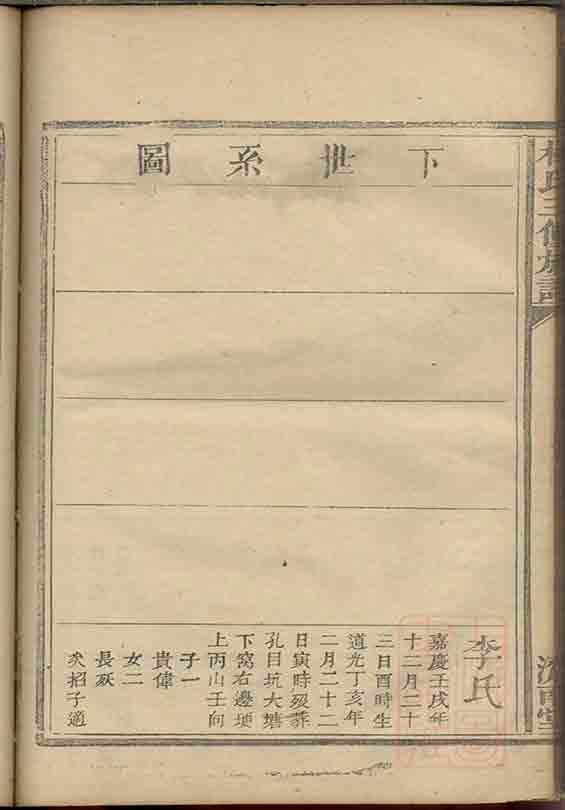 下世系圖
李氏
嘉慶壬戌年
十二月二十
三日酉時生
道光丁亥年
二月二十二
日寅時歿葬
孔目坑大塘
下窩右邊埂
上丙山壬向
子一
貴偉
女二
長殀
次招子適